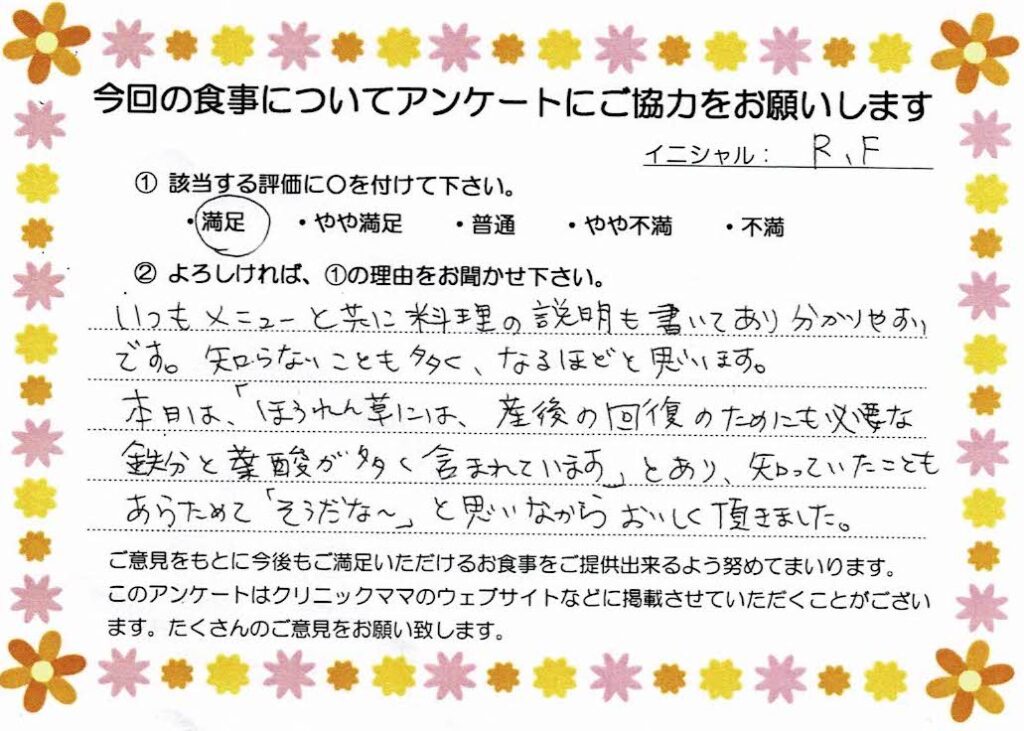 今回の食事についてアンケートにご協力をお願いします
イニシャル： R、F
① 該当する評価に〇を付けて下さい。
・満足 ・やや満足 ・普通 ・やや不満 ・不満
② よろしければ、①の理由をお聞かせ下さい。
いつもメニューと共に料理の説明も書いてあり分かりやすい
です。知らないことも多く、なるほどと思います。
本日は、「ほうれん草には、産後の回復のためにも必要な
鉄分と葉酸が多く含まれています」とあり、知っていたことも
あらためて「そうだな〜」と思いながらおいしく頂きました。
ご意見をもとに今後もご満足いただけるお食事をご提供出来るよう努めてまいります。
このアンケートはクリニックママのウェブサイトなどに掲載させていただくことがござい
ます。たくさんのご意見をお願い致します。